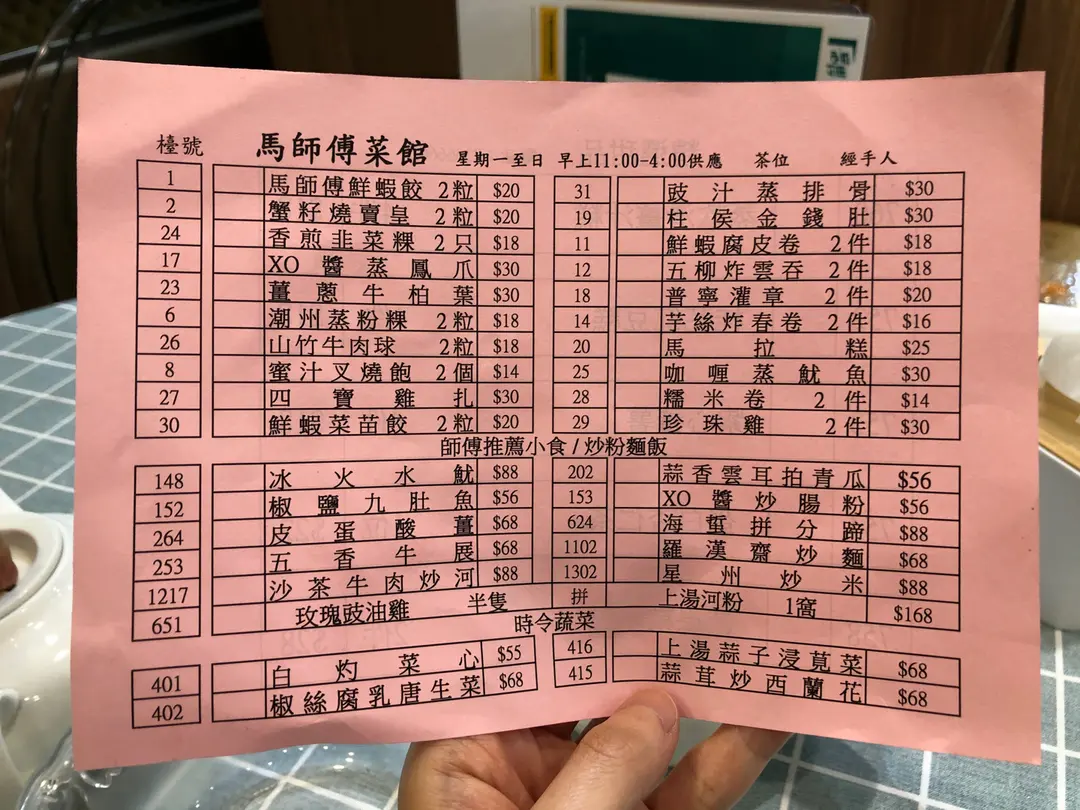 檯號 馬師傅菜館 星期一至日 早上11:00-4:00供應 茶位 經手人
1 馬師傅鮮蝦餃 2粒 $20 31 豉汁蒸排骨 $30
2 蟹籽燒賣皇 2粒 $20 19 柱侯金錢肚 $30
24 香煎韭菜粿 2只 $18 11 鮮蝦腐皮卷 2件 $18
17 XO醬蒸鳳爪 $30 12 五柳炸雲吞 2件 $18
23 薑蔥牛柏葉 $30 18 普寧灌章 2件 $20
6 潮州蒸粉粿 2粒 $18 14 芋絲炸春卷 2件 $16
26 山竹牛肉球 2粒 $18 20 馬拉糕 $25
8 蜜汁叉燒飽 2個 $14 25 咖喱蒸魷魚 $30
27 四寶雞扎 $30 28 糯米卷 2件 $14
30 鮮蝦菜苗餃 2粒 $20 29 珍珠雞 2件 $30
師傅推薦小食/炒粉麵飯
148 冰火水魷 $88 202 蒜香雲耳拍青瓜 $56
152 椒鹽九肚魚 $56 153 XO醬炒腸粉 $56
264 皮蛋酸薑 $68 624 海蜇拼分蹄 $88
253 五香牛展 $68 1102 羅漢齋炒麵 $68
1217 沙茶牛肉炒河 $88 1302 星州炒米 $88
651 玫瑰豉油雞 半隻 拼 上湯河粉 1窩 $168
時令蔬菜
401 白灼菜心 $55 416 上湯蒜子浸莧菜 $68
402 椒絲腐乳唐生菜 $68 415 蒜茸炒西蘭花 $68